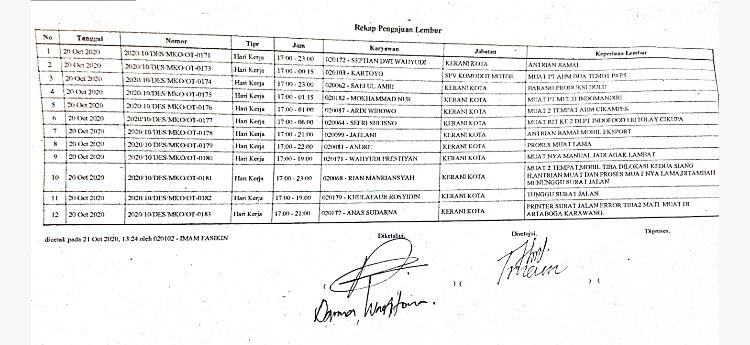 Rekap Pengajuan Lembur
No Tanggal Nomor Tipe Jam Karyawan Jabatan Keperluan Lembur
1 20 Oct 2020 2020/10/DES/MKO/OT-0171 Hari Kerja 17:00 - 23:00 020172 - SEPTIAN DWI WAHYUDI KERANI KOTA ANTRIAN RAMAI
2 20 Oct 2020 2020/10/DES/MKO/OT-0173 Hari Kerja 17:00 - 00:15 020103 - KARTOYO SPV KOMODITI MOTOR MUAT PT AHM DUA TEMPAT P4 P5
3 20 Oct 2020 2020/10/DES/MKO/OT-0174 Hari Kerja 17:00 - 23:00 020062 - SAEFUL AMRI KERANI KOTA BARANG PRODUKSI DULU
4 20 Oct 2020 2020/10/DES/MKO/OT-0175 Hari Kerja 17:00 - 01:15 020182 - MOKHAMMAD NUR KERANI KOTA MUAT PT MULTI INDOMANDIRI
5 20 Oct 2020 2020/10/DES/MKO/OT-0176 Hari Kerja 17:00 - 01:00 020087 - ARDI WIBOWO KERANI KOTA MUAT 2 TEMPAT ADM CIKAMPEK
6 20 Oct 2020 2020/10/DES/MKO/OT-0177 Hari Kerja 17:00 - 06:00 020064 - SEFRI SULISNO KERANI KOTA MUAT RIT KE 2 DI PT INDOFOOD FRITOLAY CIKUPA
7 20 Oct 2020 2020/10/DES/MKO/OT-0178 Hari Kerja 17:00 - 21:00 020099 - JAELANI KERANI KOTA ANTRIAN RAMAI MOBIL EKSPORT
8 20 Oct 2020 2020/10/DES/MKO/OT-0179 Hari Kerja 17:00 - 22:00 020081 - ANDRI KERANI KOTA PROSES MUAT LAMA
9 20 Oct 2020 2020/10/DES/MKO/OT-0180 Hari Kerja 17:00 - 19:00 020171 - WAHYUDI PRESTIYAN KERANI KOTA MUAT NYA MANUAL JADI AGAK LAMBAT
10 20 Oct 2020 2020/10/DES/MKO/OT-0181 Hari Kerja 17:00 - 23:00 020068 - RIAN MANRIANSYAH KERANI KOTA MUAT 2 TEMPAT,MOBIL TIBA DILOKASI KEDUA SIANG
ILANTRIAN MUAT DAN PROSES MUAT NYA LAMA,DITAMBAH
MENUNGGU SURAT JALAN
11 20 Oct 2020 2020/10/DES/MKO/OT-0182 Hari Kerja 17:00 - 19:00 020179 - KHULAFAUR ROSYIDIN KERANI KOTA TUNGGU SURAT JALAN
12 20 Oct 2020 2020/10/DES/MKO/OT-0183 Hari Kerja 17:00 - 21:00 020177 - ANAS SUDARNA KERANI KOTA PRINTER SURAT JALAN ERROR TIBA2 MATI, MUAT DI
ARTABOGA KARAWANG.
dicetak pada 21 Oct 2020, 13:24 oleh 020102 - IMAM FASIKIN
Diketahui, Disetujui, Diproses,